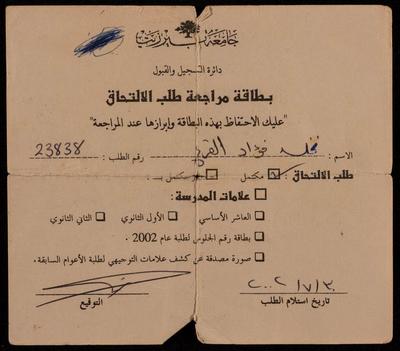 جامعة بيرزيت
دائرة التسجيل والقبول
بطاقة مراجعة طلب الالتحاق
"عليك الاحتفاظ بهذه البطاقة وإبرازها عند المراجعة"
الاسم : فؤاد رقم الطلب : 23838
طلب الالتحاق : مكتمل مكتمل
علامات المدرسة :
العاشر الأساسي الأول الثانوي الثاني الثانوي
بطاقة رقم الجلوس لطلبة عام 2002 .
صورة مصدقة عن كشف علامات التوجيهي لطلبة الأعوام السابقة .
٢٠٠٢/٧/٣٠
تاريخ استلام الطلب التوقيع